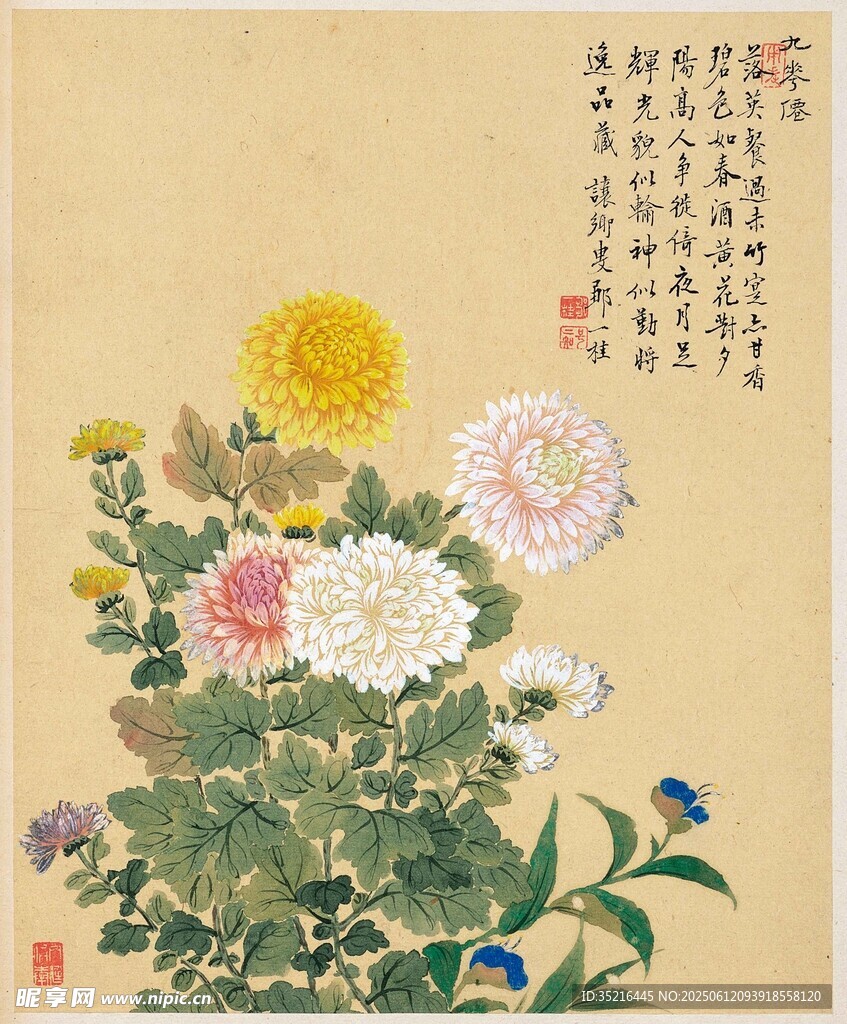 九華僊
落英餐過未竹寔亦甘香
碧色如春酒黄花對夕
陽高人争徙倚夜月足
輝光貌似輪神似勤將
逸品藏 讓卿叟鄒一桂
昵享网 www.nipic.cn
ID:35216445 NO:20250612093918558120